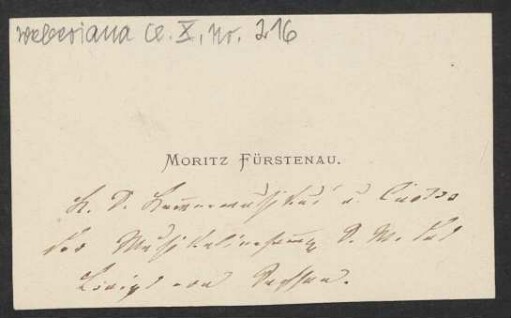 Weberiana Cl. X, Nr. 216
MORITZ FÜRSTENAU.
K. S. Kammermusikus u. Custos
der Musikaliensammg S. M. des
Königs von Sachsen.